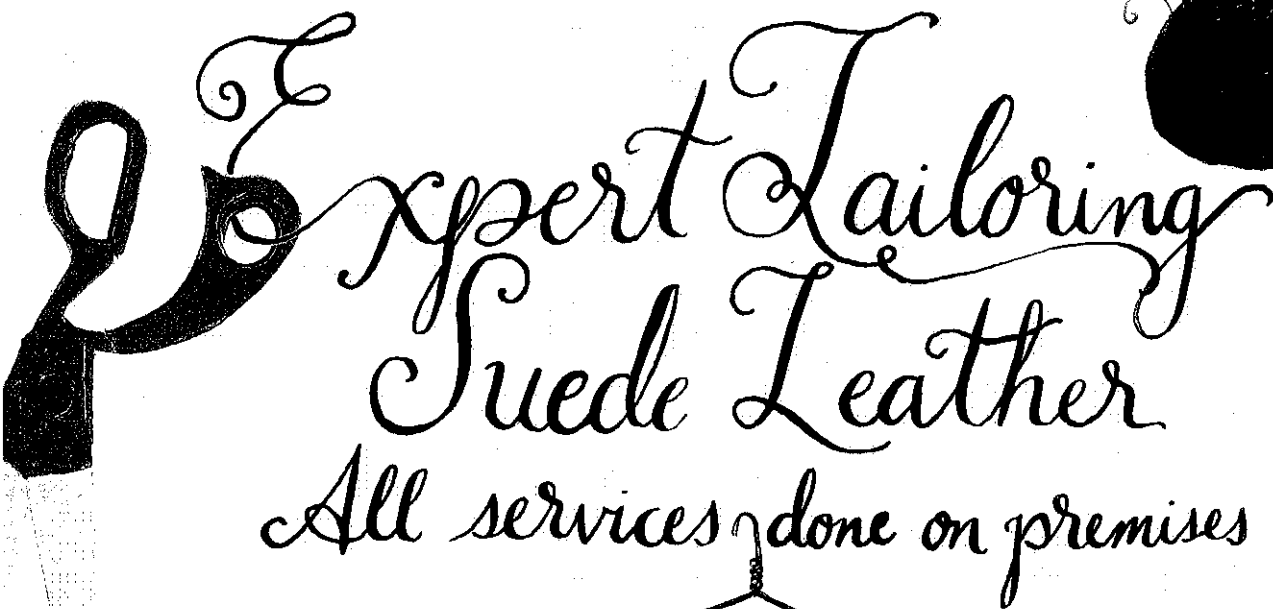 Expert Tailoring
Suede Leather
All services done on premises